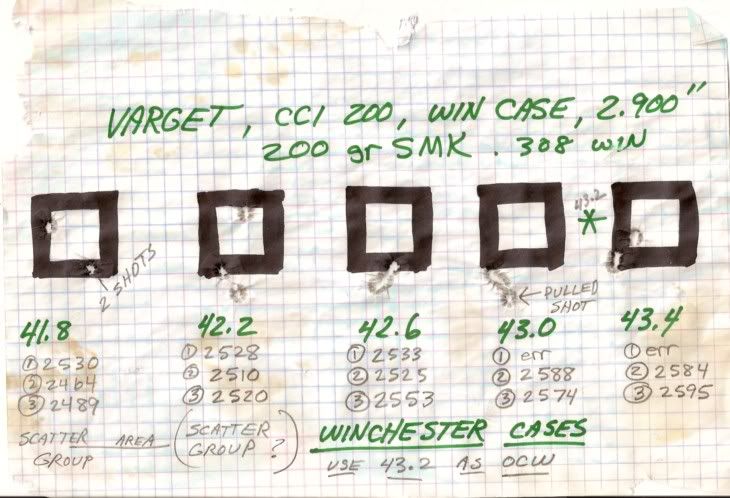 VARGET, CCI 200, WIN CASE, 2.900"
200 gr SMK . 308 WIN
43.2
*
2 SHOTS
← PULLED SHOT
41.8 42.2 42.6 43.0 43.4
① 2530 ① 2528 ① 2533 ① err ① err
② 2464 ② 2510 ② 2525 ② 2588 ② 2584
③ 2489 ③ 2520 ③ 2553 ③ 2574 ③ 2595
SCATTER GROUP AREA (SCATTER GROUP ?) WINCHESTER CASES
USE 43.2 AS OCW